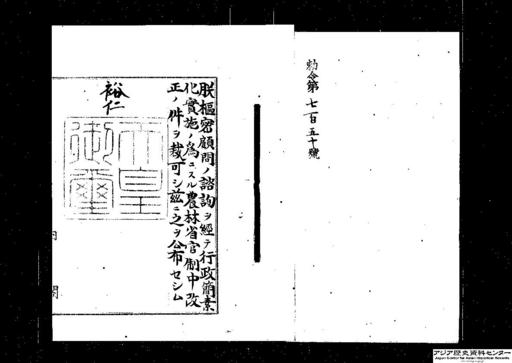 勅令第七百五十號
朕樞密顧問ノ諮詢ヲ經テ行政簡素
化實施ノ爲ニスル農林省官制中改
正ノ件ヲ裁可シ茲ニ之ヲ公布セシム
裕仁
天皇御璽
内閣
アジア歴史資料センター
Japan Center for Asian Historical Records